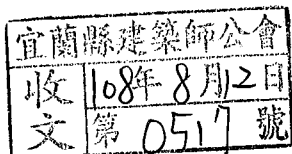 宜蘭縣建築師公會
收文
108年8月12日
第0517號